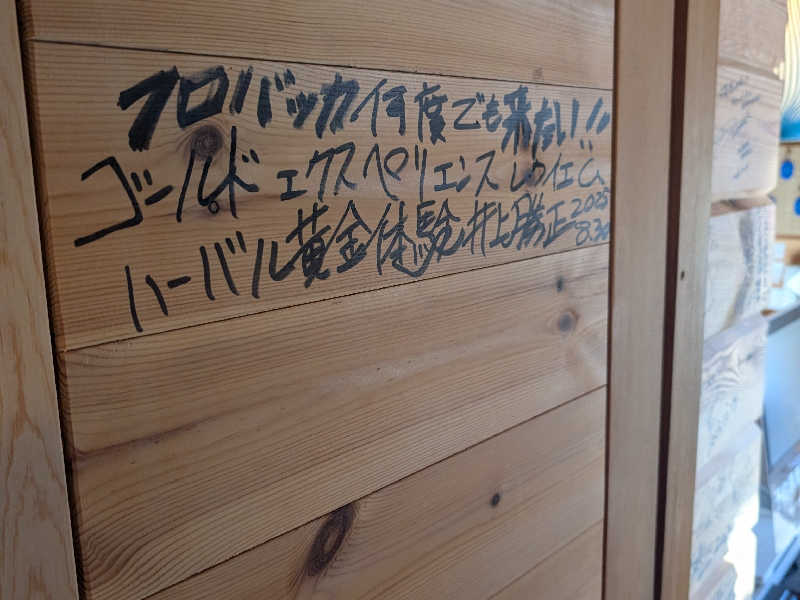 フロバッカ何度でも来たい!!
ゴールドエクスペリエンスレクイエム
ハーバル黄金体験井上勝正2025
8.30